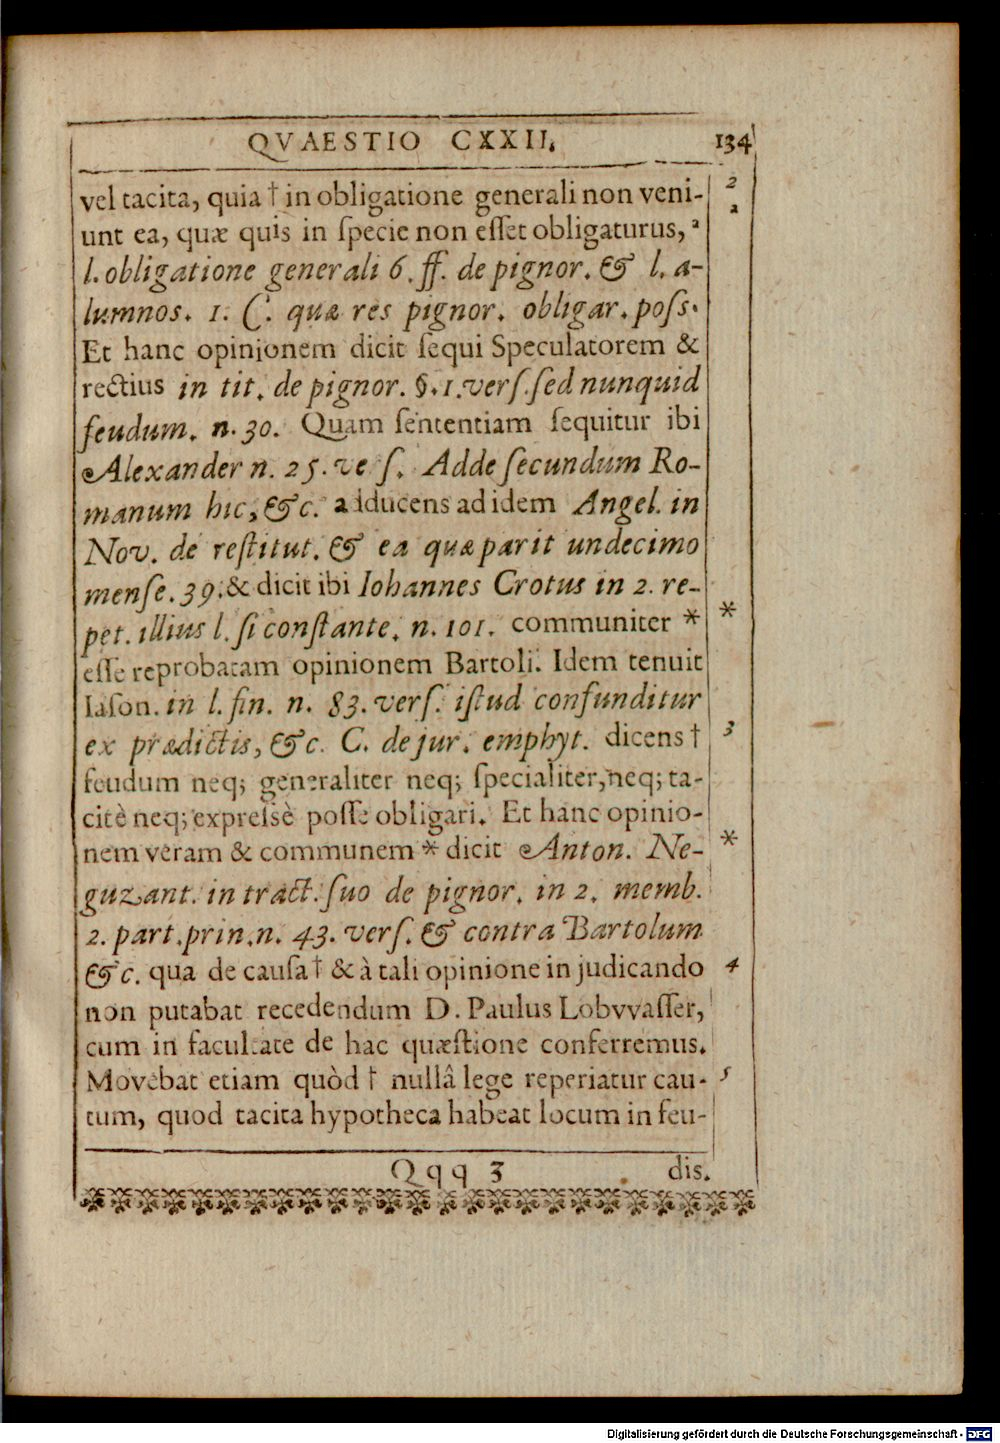 QVAESTIO CXXII. 134
vel tacita, quia † in obligatione generali non veni- 2
unt ea, quæ quis in ſpecie non eſſet obligaturus, ª a
l. obligatione generali 6. ff. de pignor. & l. a-
lumnos. 1. C. quæ res pignor. obligar. poſs.
Et hanc opinionem dicit ſequi Speculatorem &
rectius in tit. de pignor. §. 1. verſ. ſed nunquid
feudum. n. 30. Quam ſententiam ſequitur ibi
Alexander n. 25. ve ſ. Adde ſecundum Ro-
manum hic, &c. adducens ad idem Angel. in
Nov. de reſtitut. & ea quæ parit undecimo
menſe. 39. & dicit ibi Iohannes Crotus in 2. re-
pet. illius l. ſi conſtante. n. 101. communiter * *
eſſe reprobatam opinionem Bartoli. Idem tenuit
Iaſon. in l. fin. n. 83. verſ. iſtud confunditur
ex prædictis, &c. C. de jur. emphyt. dicens † 3
feudum neq; generaliter neq; ſpecialiter, neq; ta-
citè neq; expreſsè poſſe obligari. Et hanc opinio-
nem veram & communem * dicit Anton. Ne- *
guzant. in tract. ſuo de pignor. in 2. memb.
2. part. prin. n. 43. verſ. & contra Bartolum
&c. qua de cauſa † & à tali opinione in judicando 4
non putabat recedendum D. Paulus Lobvvaſſer,
cum in facultate de hac quæſtione conferremus.
Movebat etiam quòd † nullâ lege reperiatur cau- 5
tum, quod tacita hypotheca habeat locum in feu-
Qqq 3 dis.
Digitalisierung gefördert durch die Deutsche Forschungsgemeinschaft - DFG